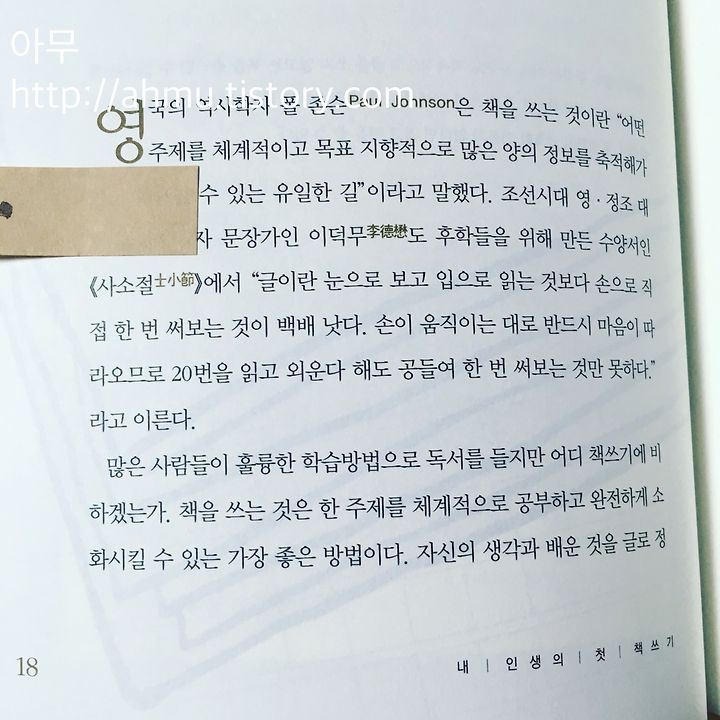 아무
http://ahmu.tistory.com
영국의 역사학자 폴 존슨Paul Johnson은 책을 쓰는 것이란 “어떤
주제를 체계적이고 목표 지향적으로 많은 양의 정보를 축적해가
수 있는 유일한 길”이라고 말했다. 조선시대 영·정조 대
자 문장가인 이덕무李德懋도 후학들을 위해 만든 수양서인
《사소절士小節》에서 “글이란 눈으로 보고 입으로 읽는 것보다 손으로 직
접 한 번 써보는 것이 백배 낫다. 손이 움직이는 대로 반드시 마음이 따
라오므로 20번을 읽고 외운다 해도 공들여 한 번 써보는 것만 못하다.”
라고 이른다.
많은 사람들이 훌륭한 학습방법으로 독서를 들지만 어디 책쓰기에 비
하겠는가. 책을 쓰는 것은 한 주제를 체계적으로 공부하고 완전하게 소
화시킬 수 있는 가장 좋은 방법이다. 자신의 생각과 배운 것을 글로 정
18
내 | 인생의 | 첫 | 책쓰기